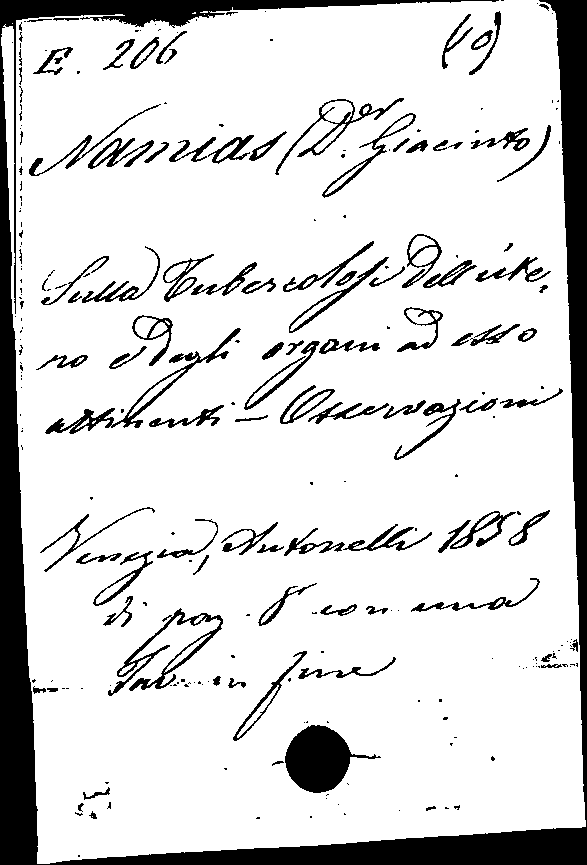 E. 206 (10)
Namias (D.or Giacinto)
Sulla Tubercolosi dell'ute-
ro e degli organi ad esso
attinenti - Osservazioni
Venezia, Antonelli 1858
di pag. 8 con una
Tav. in fine